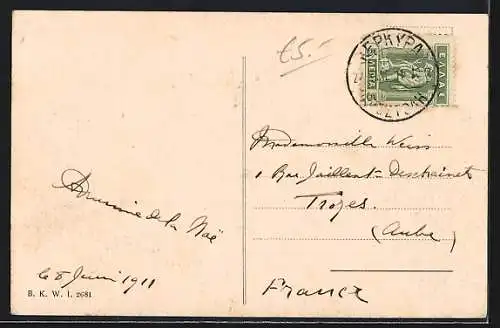 £5.-
ΚΕΡΚΥΡΑ
ΕΛΛΑΣ
ΛΕΠΤΑ
Mademoiselle Weiss
1 Rue Jaillant-Deschainets
Troyes.
(Aube)
France
de la Noë
le 5 Juin 1911
B. K. W. I. 2681